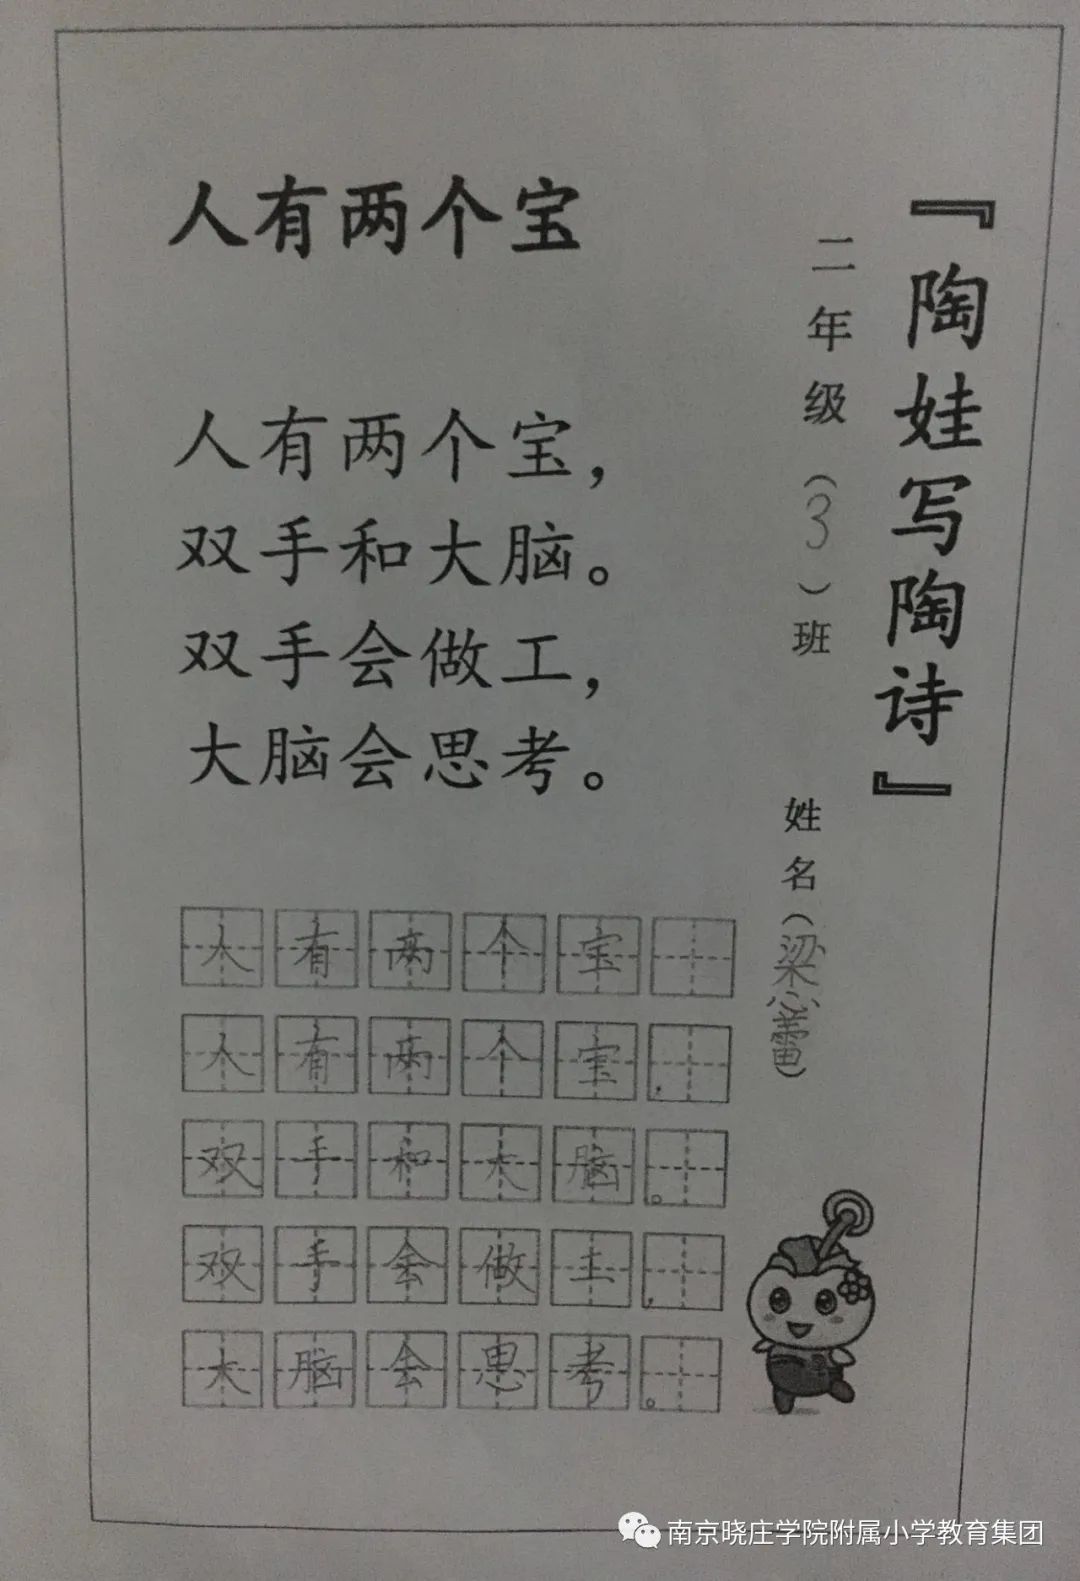 『陶娃写陶诗』
二年级（3）班 姓名（梁心蕾）
人有两个宝
人有两个宝，
双手和大脑。
双手会做工，
大脑会思考。
人有两个宝
人有两个宝，
双手和大脑。
双手会做工，
大脑会思考。
南京晓庄学院附属小学教育集团